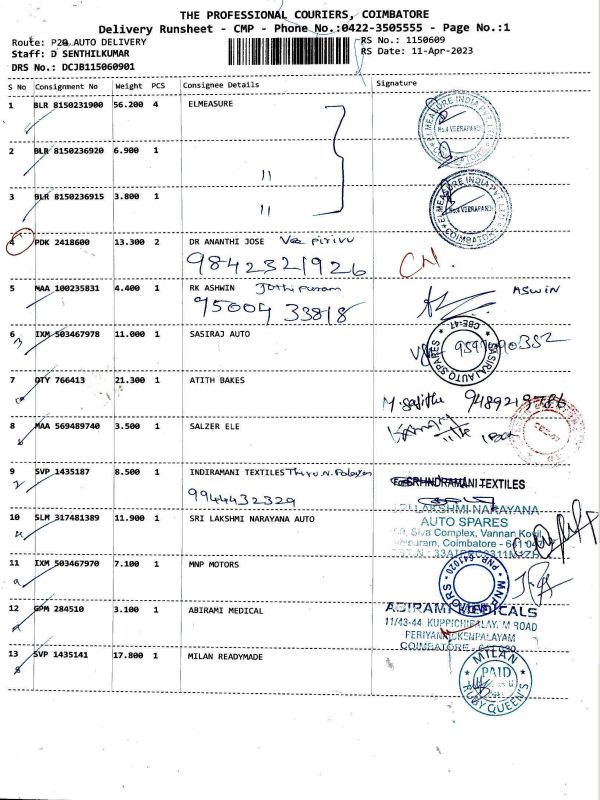 THE PROFESSIONAL COURIERS, COIMBATORE
Delivery Runsheet - CMP - Phone No.:0422-3505555 - Page No.:1
Route: P20 AUTO DELIVERY
RS No.: 1150609
Staff: D SENTHILKUMAR
RS Date: 11-Apr-2023
DRS No.: DCJB115060901
S No Consignment No Weight PCS Consignee Details Signature
1 BLR 8150231900 56.200 4 ELMEASURE
ELMEASURE INDIA PVT LTD
No.4 VEERAPANDI
COIMBATORE
2 BLR 8150236920 6.900 1 11
3 BLR 8150236915 3.800 1 11
ELMEASURE INDIA PVT LTD
No.4 VEERAPANDI
COIMBATORE
4 PDK 2418600 13.300 2 DR ANANTHI JOSE Vee Pirivu
9842321926
CN.
5 MAA 100235831 4.400 1 RK ASHWIN Jothipuram ASWIN
95004 33818
6 IXM 503467978 11.000 1 SASIRAJ AUTO
SASIRAJ AUTO SPARES
CBE-47
7 OTY 766413 21.300 1 ATITH BAKES
8 MAA 569489740 3.500 1 SALZER ELE
9 SVP 1435187 8.500 1 INDIRAMANI TEXTILES
9944432329
For SRI INDRAMANI TEXTILES
10 SLM 317481389 11.900 1 SRI LAKSHMI NARAYANA AUTO
LAKSHMI NARAYANA
AUTO SPARES
Siva Complex, Vannan Kovil
Coimbatore - 641 047
11 IXM 503467970 7.100 1 MNP MOTORS
MNP MOTORS
PNP - 641020
12 GPM 284510 3.100 1 ABIRAMI MEDICAL
ABIRAMI MEDICALS
11/43-44, KUPPICHIPALAYAM ROAD
PERIYANAICKENPALAYAM
COIMBATORE - 641 020
13 SVP 1435141 17.800 1 MILAN READYMADE
MILAN
PAID
RUBY QUEEN'S